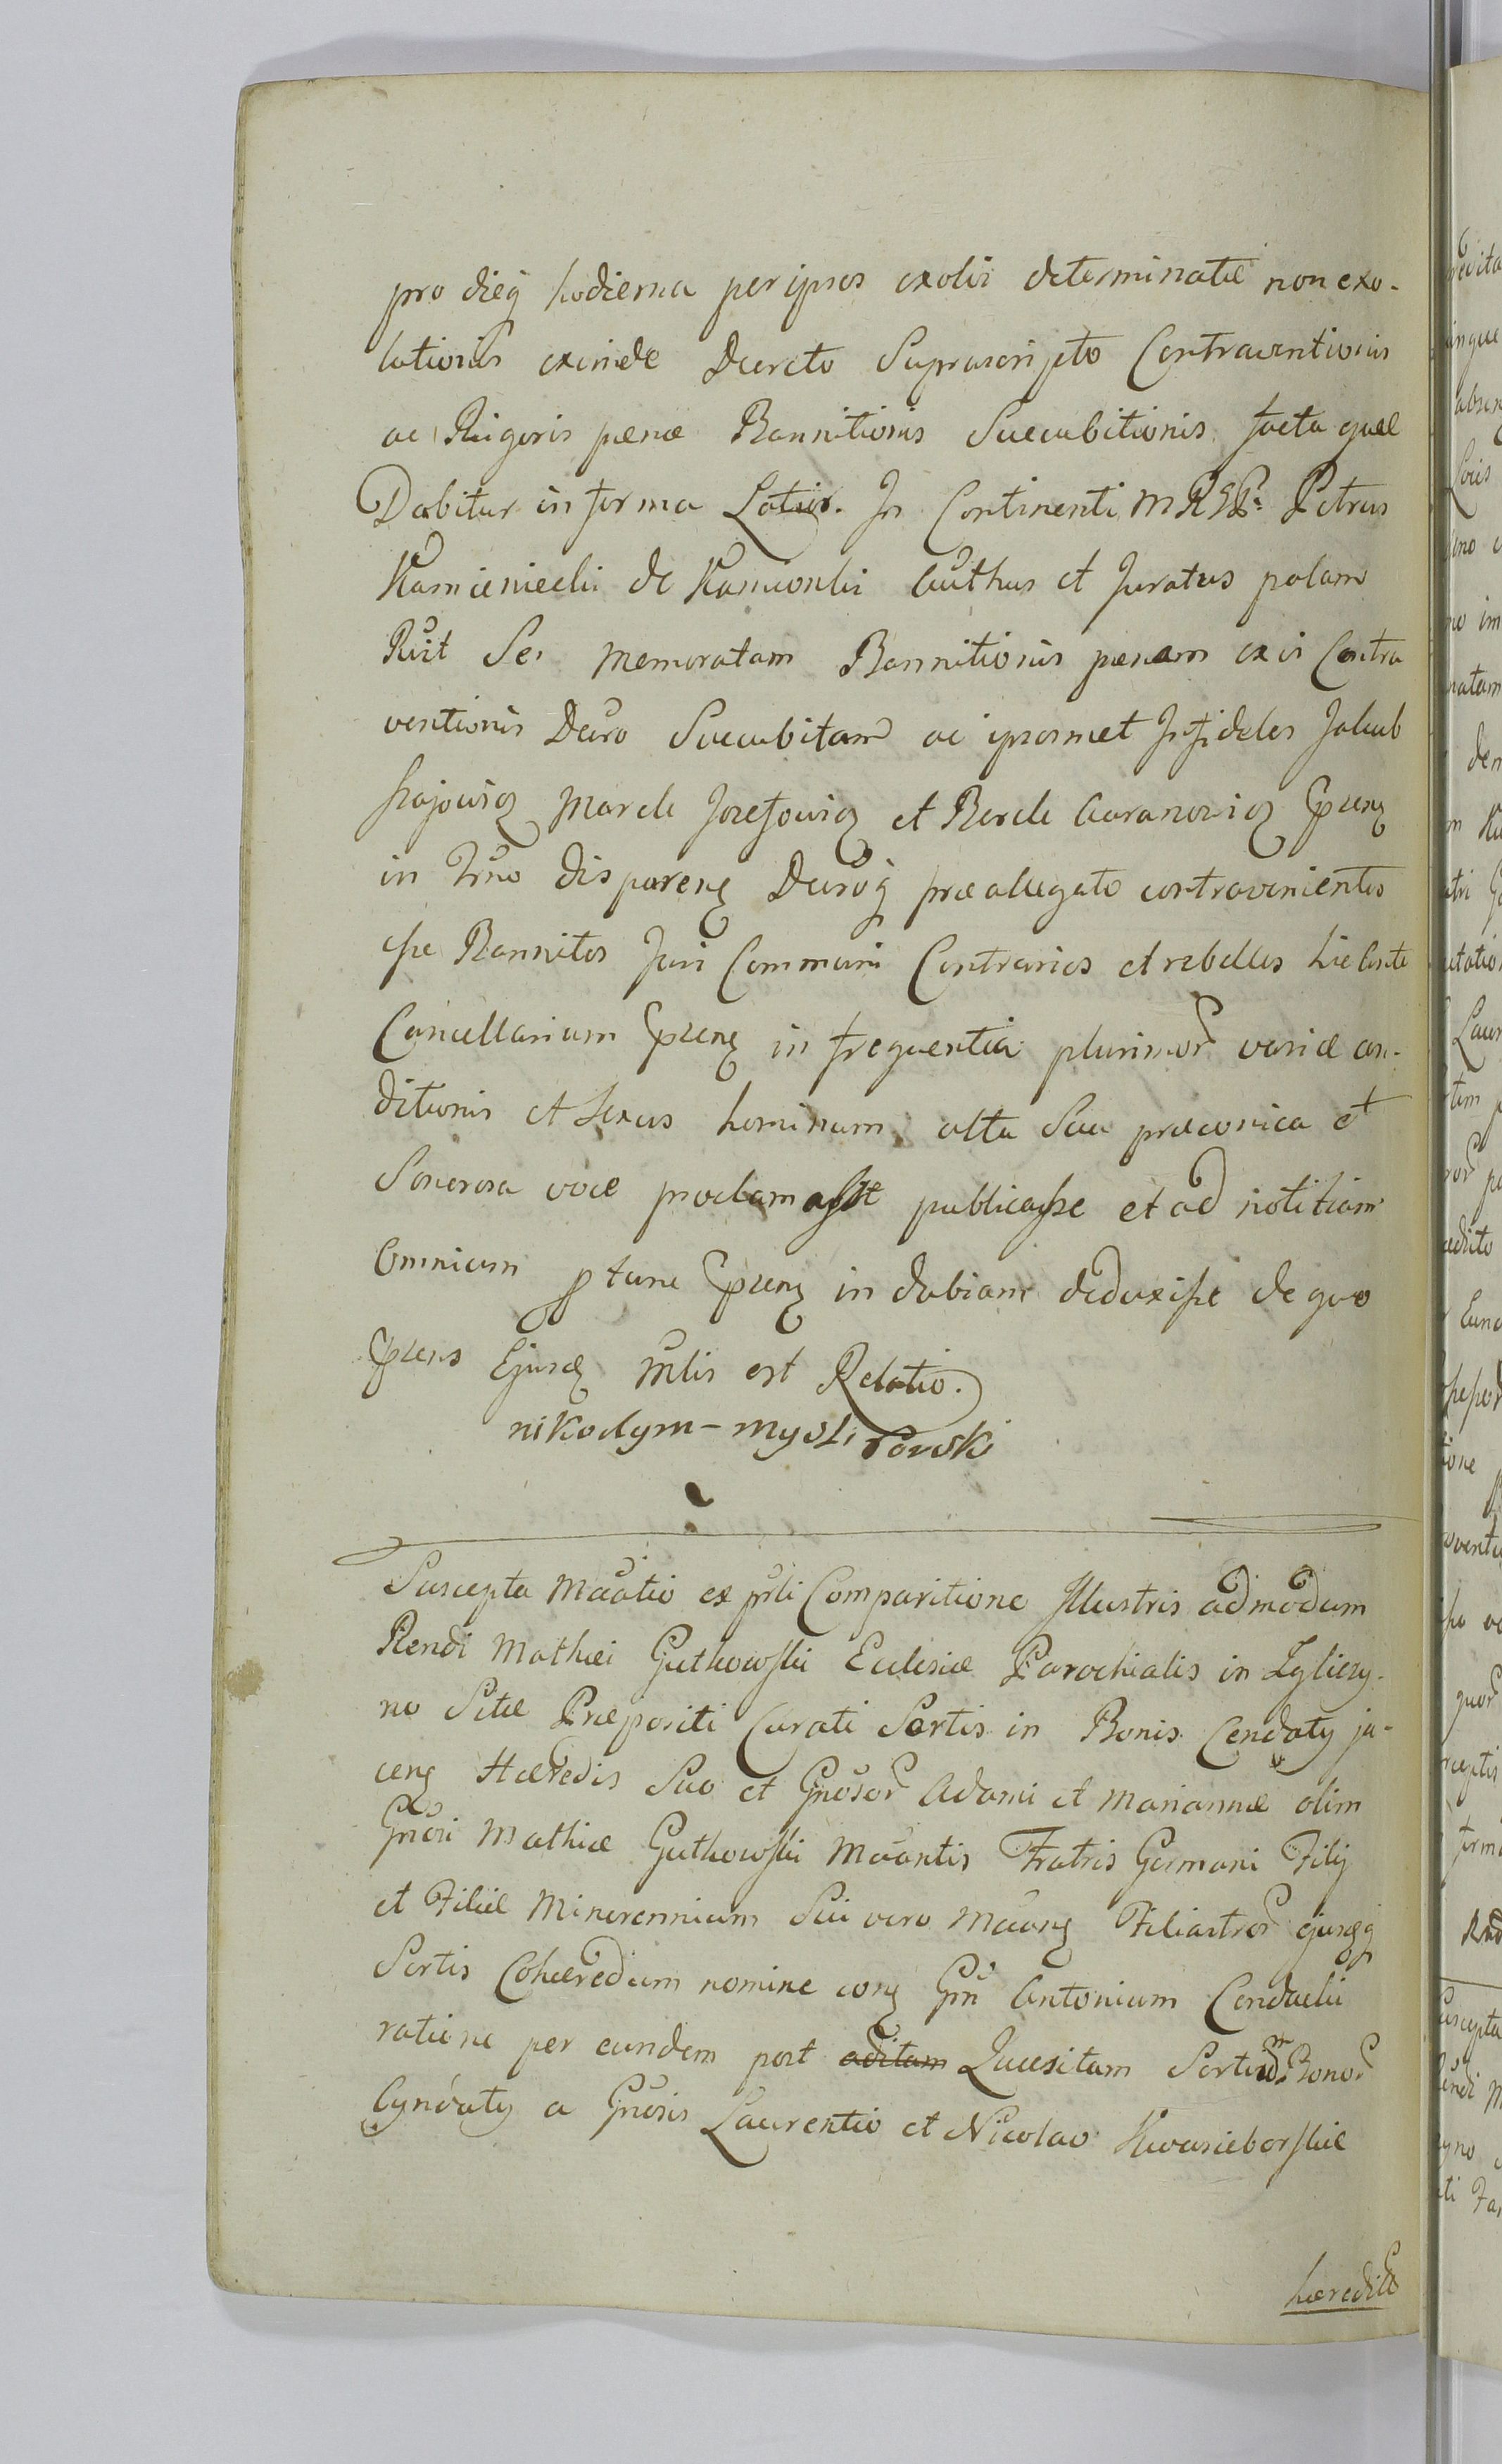 pro dieq hodierna per ipsos exolvi determinatæ non exo-
lutionis exinde Decreto Suprascripto Contraventionis
ac Rigoris pænæ Bannitionis Succubitionis facta quæ
Dabitur in forma Latior. In Continenti MRSPr Petrus
Kamieniecki de Kamionki Authus et Juratus palam
Rūit Se, memoratam Bannitionis pænam ex vi Contra
ventionis Decro Succubitam ac ipsosmet Infideles Jakub
Hajowicz Marek Jozefowicz et Berek Aaranowicz pręnz
in Trno disparenz Decroq præallegato contravenientes
esse Bannitos Juri Communi Contrarios et rebelles hic Ante
Cancellariam pręnz in frequentia plurimor variæ con-
ditionis et Sexus hominum, alta Sua præconica et
Sonorosa voce proclamasse publicasse et ad notitiam
Omnium ptunc pręnz in dubiam deduxisse de quo
pręns Ejusd Mlis est Relatio.
nikodym - myslisowski
Suscepta Mātio ex pñli Comparitione Illustris admodum
Rendi Mathæi Gutkowski Ecclesiæ Parochialis in Zgliczy-
no Sitæ Præpositi Curati Sortis in Bonis Cendaty ja-
cenz Hæredis Suo et Gnosor Adami et Mariannæ olim
Gnosi Mathiæ Gutkowski Māntis Fratris Germani Filij
et Filiæ Minorennium Sui vero Māonz Filiastror ejusdq
Sortis Cohæredum nomine conz Gm Antonium Cendacki
ratione per eundem post aditam Quæsitam Sortis dm Bonor
Cyndaty a Gnosis Laurentio et Nicolao Kwasieborskie
hæredib